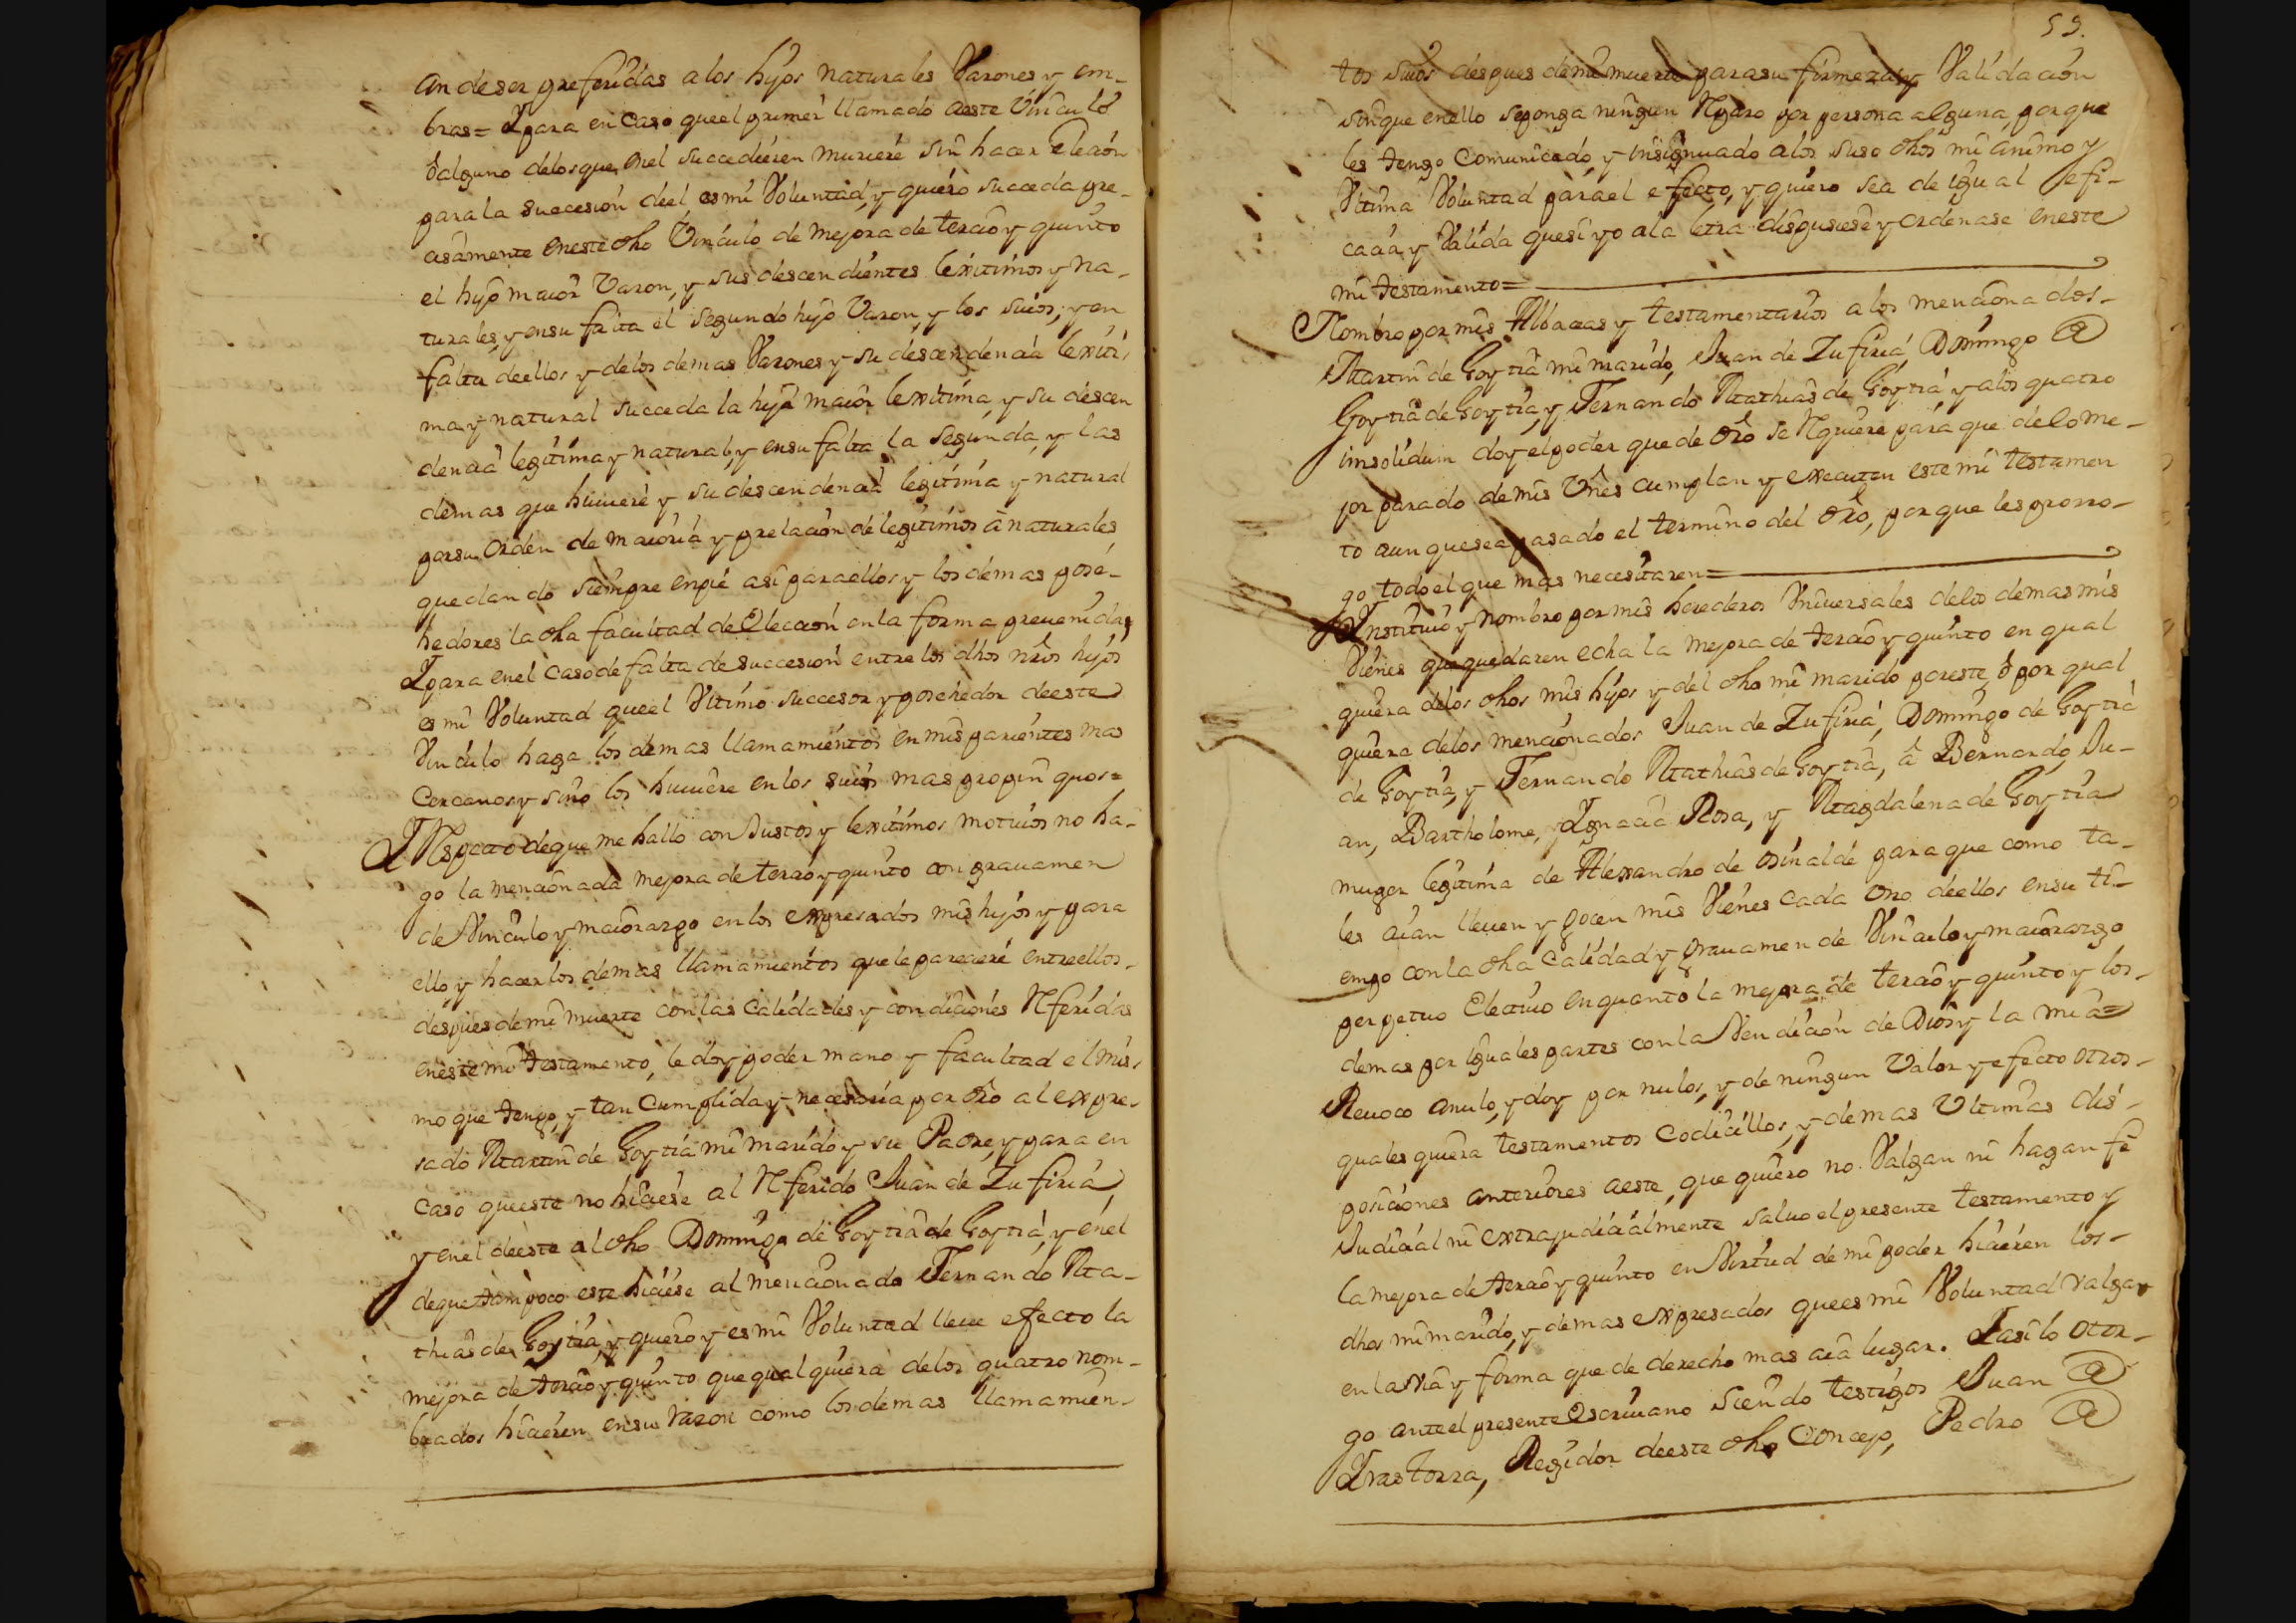 an de ser preferidas a los hijos naturales Varones y em-
bras= Y para en Caso que el primer llamado a este Vinculo
ò alguno delos que en el succedieren muriere sin hacer Elecion
para la succesion de el, es mi Voluntad, y quiero succeda pre-
cisamente en este dho Vinculo de Mejora de tercio y quinto
el hijo maior Varon, y sus descendientes lexitimos y na-
turales, y en su falta el segundo hijo Varon, y los suios, y en
falta de ellos y de los demas Varones y su descendencia lexiti-
ma y natural succeda la hija maior lexitima, y su descen
dencia legitima y natural, y en su falta la segunda, y las
demas que huuiere y su descendencia legitima y natural
por su orden de maioria y prelacion de legitimos à naturales
quedando siempre en pie asi para ellos y los demas pose-
hedores la dha facultad de Eleccion en la forma preuenida,
Y para en el caso de falta de succesion entre los dhos nros hijos
es mi Voluntad que el Vltimo successor y posehedor de este
Vinculo haga los demas llamamientos en mis parientes mas
Cercanos y sino los huuiere en los suios mas propinquos=
Y Respecto de que me hallo con Justos y lexitimos motiuos no ha-
go la mencionada mejora de tercio y quinto con grauamen
de Vinculo y maiorazgo en los expresados mis hijos y para
ello y hacer los demas llamamientos que le pareciere entre ellos-
despues de mi muerte con las calidades y condiciones Referidas
en este mi testamento, le doy poder mano y facultad el mis-
mo que tengo, y tan cumplida y necesaria por dro al expre-
sado Martin de Goytia mi marido y su Padre, y para en
caso que este no hiciese al Referido Juan de Zufiria,
y en el de este al dho Domingo de Goytia de Goytia, y en el
de que tampoco este hiciese al mencionado Fernando Ma-
thias de Goytia, y quiero y es mi Voluntad lleue efecto la
mejora de tercio y quinto que qualquiera de los quatro nom-
brados hicieren en su razon como los demas llamamien-
59.
tos suios despues de mi muerte para su firmeza y Validacion
sin que en ello se ponga ningun Reparo por persona alguna, porque
les tengo comunicado, y insignuado a los suso dhos mi animo y
Vltima Voluntad para el efecto, y quiero sea de igual efi-
cacia y Valida que si yo a la letra dispusiese y ordenase en este
mi testamento=
Nombro por mis Albaceas y testamentarios a los mencionados-
Martin de Goytia mi marido, Juan de Zufiria, Domingo de
Goytia de Goytia, y Fernando Mathias de Goytia, y a los quatro
insolidum doy el poder que de dro se Requiere para que de lo me-
jor parado de mis Vnes cumplan y executen este mi testamen
to aunque sea pasado el termino del dro, porque les prorro-
go todo el que mas necesitaren=
Y Instituio y nombro por mis herederos Vniversales delos demas mis
Vienes que quedaren echa la mejora de tercio y quinto en qual
quiera de los dhos mis hijos y del dho mi marido por este, ò por qual
quiera delos mencionados Juan de Zufiria, Domingo de Goytia
de Goytia, y Fernando Mathias de Goytia, â Bernardo, Ju-
an, Bartholome, Ygnacia Rosa, y Magdalena de Goytia
muger legitima de Alexandro de Osinalde para que como ta-
les aian lleuen y gocen mis Vienes cada vno de ellos en su ti-
empo con la dha calidad y grauamen de Vinculo y maiorazgo
perpetuo Electiuo en quanto la mejora de tercio y quinto y los-
demas por iguales partes con la Vendicion de Dios y la mia=
Reuoco anulo, y doy por nulos, y de ningun Valor y efecto otros-
quales quiera testamentos codicillos, y demas Vltimas dis-
posiciones anteriores a este, que quiero no Valgan ni hagan fê
Judicial ni extrajudicialmente saluo el presente testamento y
la mejora de tercio y quinto en Virtud de mi poder hicieren los-
dhos mi marido, y demas expresados que es mi Voluntad valgan
en la via y forma que de derecho mas aia lugar. Y asi lo otor-
go ante el presente Escriuano siendo testigos Juan de
Yrastorza, Regidor de este dho Concejo, Pedro de